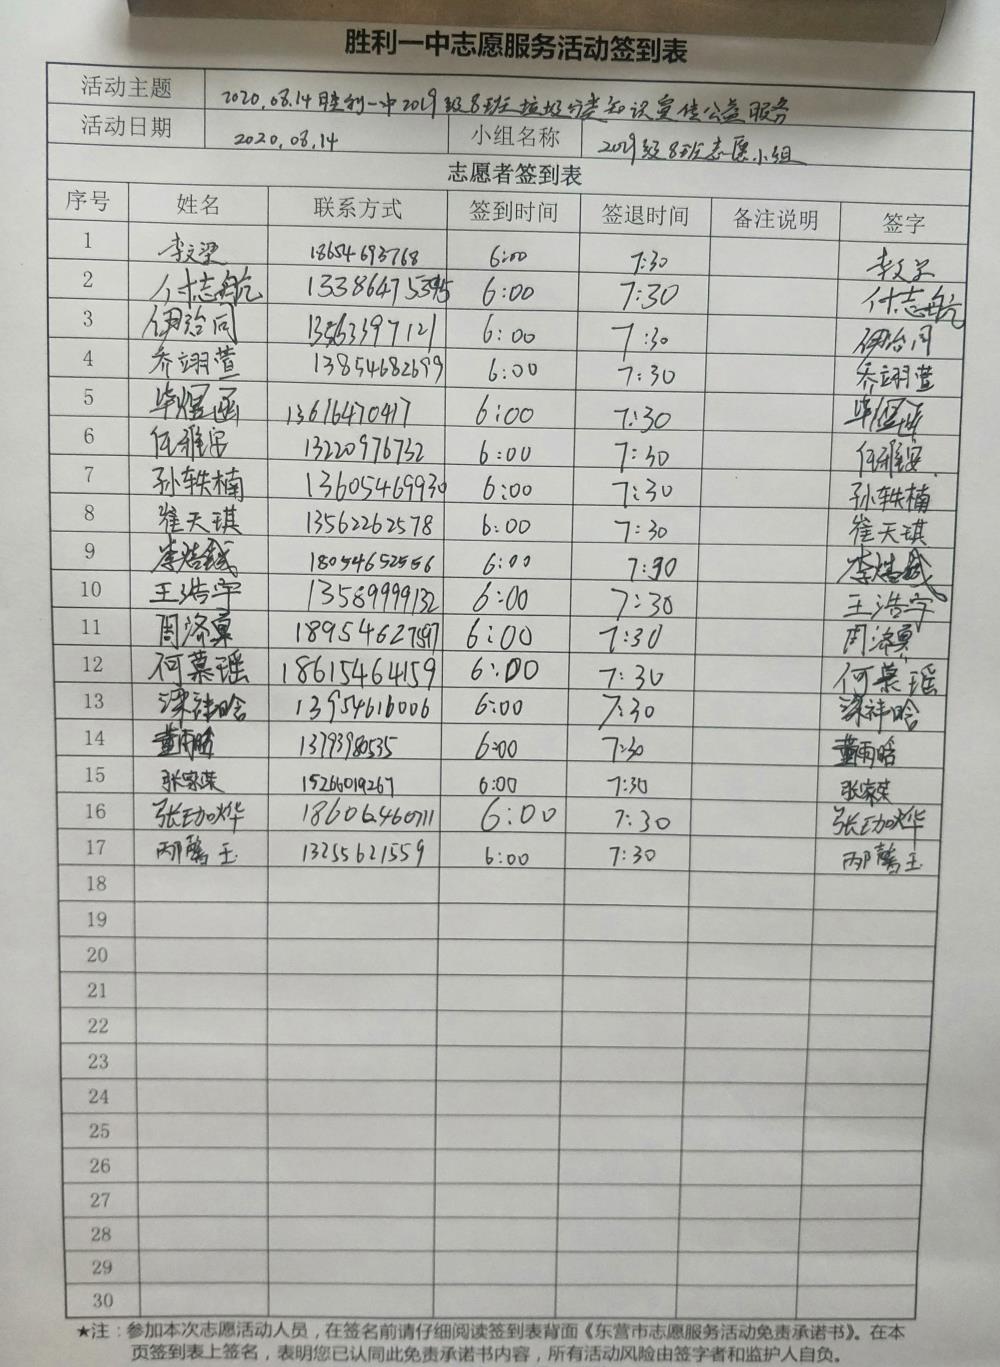 胜利一中志愿服务活动签到表
活动主题 2020.08.14胜利一中2019级8班垃圾分类知识宣传公益服务
活动日期 2020.08.14 小组名称 2019级8班志愿小组
志愿者签到表
序号 姓名 联系方式 签到时间 签退时间 备注说明 签字
1 李文 18654693768 6:00 7:30 李文
2 付志航 13386475395 6:00 7:30 付志航
3 伊治同 13563397121 6:00 7:30 伊治同
4 乔翊萱 13854682699 6:00 7:30 乔翊萱
5 毕煜函 13616470417 6:00 7:30 毕煜函
6 任雅安 13220976732 6:00 7:30 任雅安
7 孙轶楠 13605469930 6:00 7:30 孙轶楠
8 崔天琪 13562262578 6:00 7:30 崔天琪
9 李 18054652556 6:00 7:30 李
10 王浩宇 13589999132 6:00 7:30 王浩宇
11 周济 6:00 7:30 周济
12 何慕瑶 18615464159 6:00 7:30 何慕瑶
13 梁祎晗 13954616006 6:00 7:30 梁祎晗
14 董雨晗 13793980535 6:00 7:30 董雨晗
15 张家荣 15266019267 6:00 7:30 张家荣
16 张珈烨 18606460711 6:00 7:30 张珈烨
17 邴馨玉 13255621559 6:00 7:30 邴馨玉
18
19
20
21
22
23
24
25
26
27
28
29
30
★注：参加本次志愿活动人员，在签名前请仔细阅读签到表背面《东营市志愿服务活动免责承诺书》。在本
页签到表上签名，表明您已认同此免责承诺书内容，所有活动风险由签字者和监护人自负。